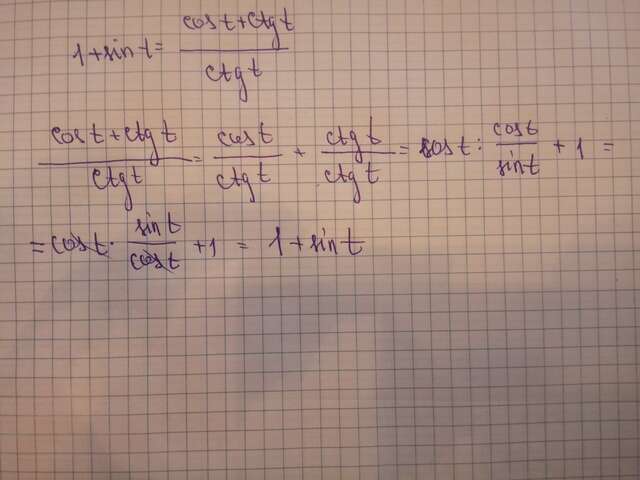 1+sin t = (cos t + ctg t) / (ctg t)
(cos t + ctg t) / (ctg t) = (cos t) / (ctg t) + (ctg t) / (ctg t) = cos t : (cos t) / (sin t) + 1 =
= cos t · (sin t) / (cos t) + 1 = 1 + sin t